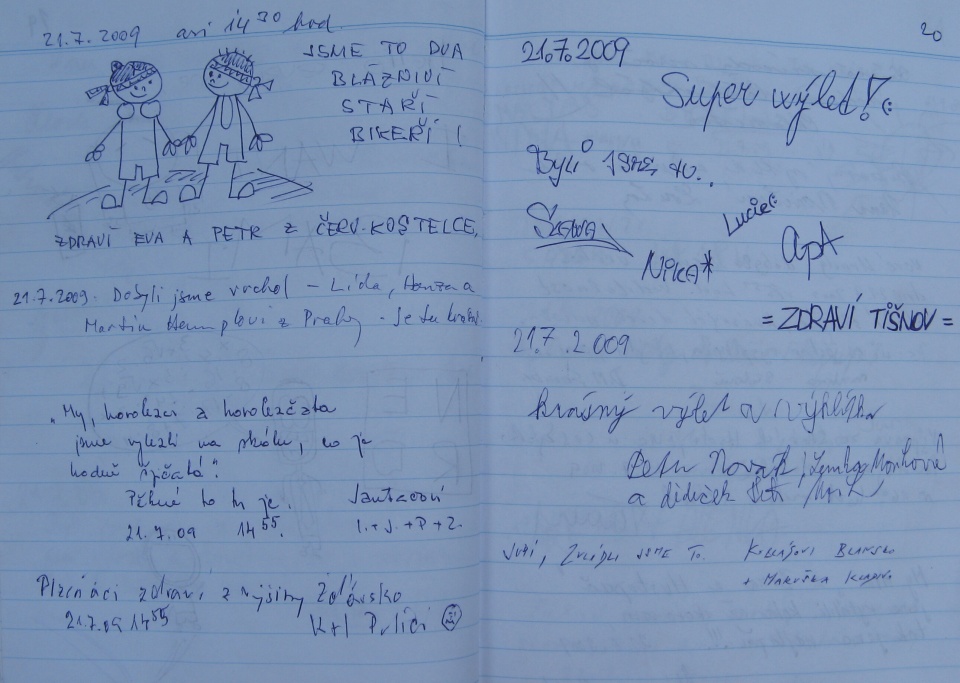 21.7.2009 asi 14 30 hod.
JSME TO DVA
BLÁZNIVÍ
STAŘÍ
BIKEŘI !
ZDRAVÍ EVA A PETR Z ČERV. KOSTELCE.
21.7.2009. Dobyli jsme vrchol - Lída, Honza a
Martin Hemplovi z Prahy - Je tu krásně.
"My, horolezci a horolezčata
jsme vylezli na skálu, co je
hodně špičatá."
Pěkné to tu je.
21.7.09 14 55.
I.+J.+P+Z.
Plzeňáci zdraví z výšiny Žďársko
21.7.09 14 55
K+I
20
21.7.2009
Super výlet!
Byli jsme tu.
Lucie
NIKA*
= ZDRAVÍ TIŠNOV =
21.7.2009
krásný výlet a výhlídka
Petr Novák,
a dědeček
JUPÍ, ZVLÁDLI JSME TO. BLANSKO
+ MARUŠKA